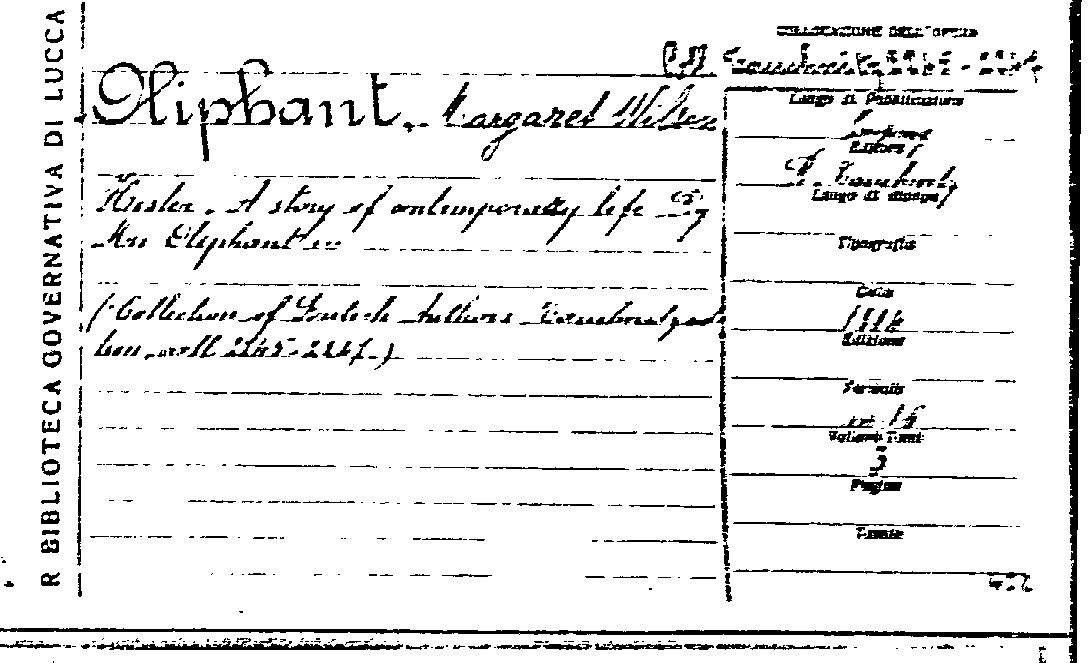 R BIBLIOTECA GOVERNATIVA DI LUCCA
COLLOCAZIONE DELL'OPERA
Oliphant, Margaret Wilson
Hester. A story of contemporary life By
Mrs Oliphant
(Collection of British Authors Tauchnitz edi
tion, voll 2245-2247.)
Luogo di Pubblicazione
Editore
B. Tauchnitz
Luogo di stampa
Tipografia
Data
1884
Edizione
Formato
in 16
Volumi Tomi
3
Pagine
Tavole